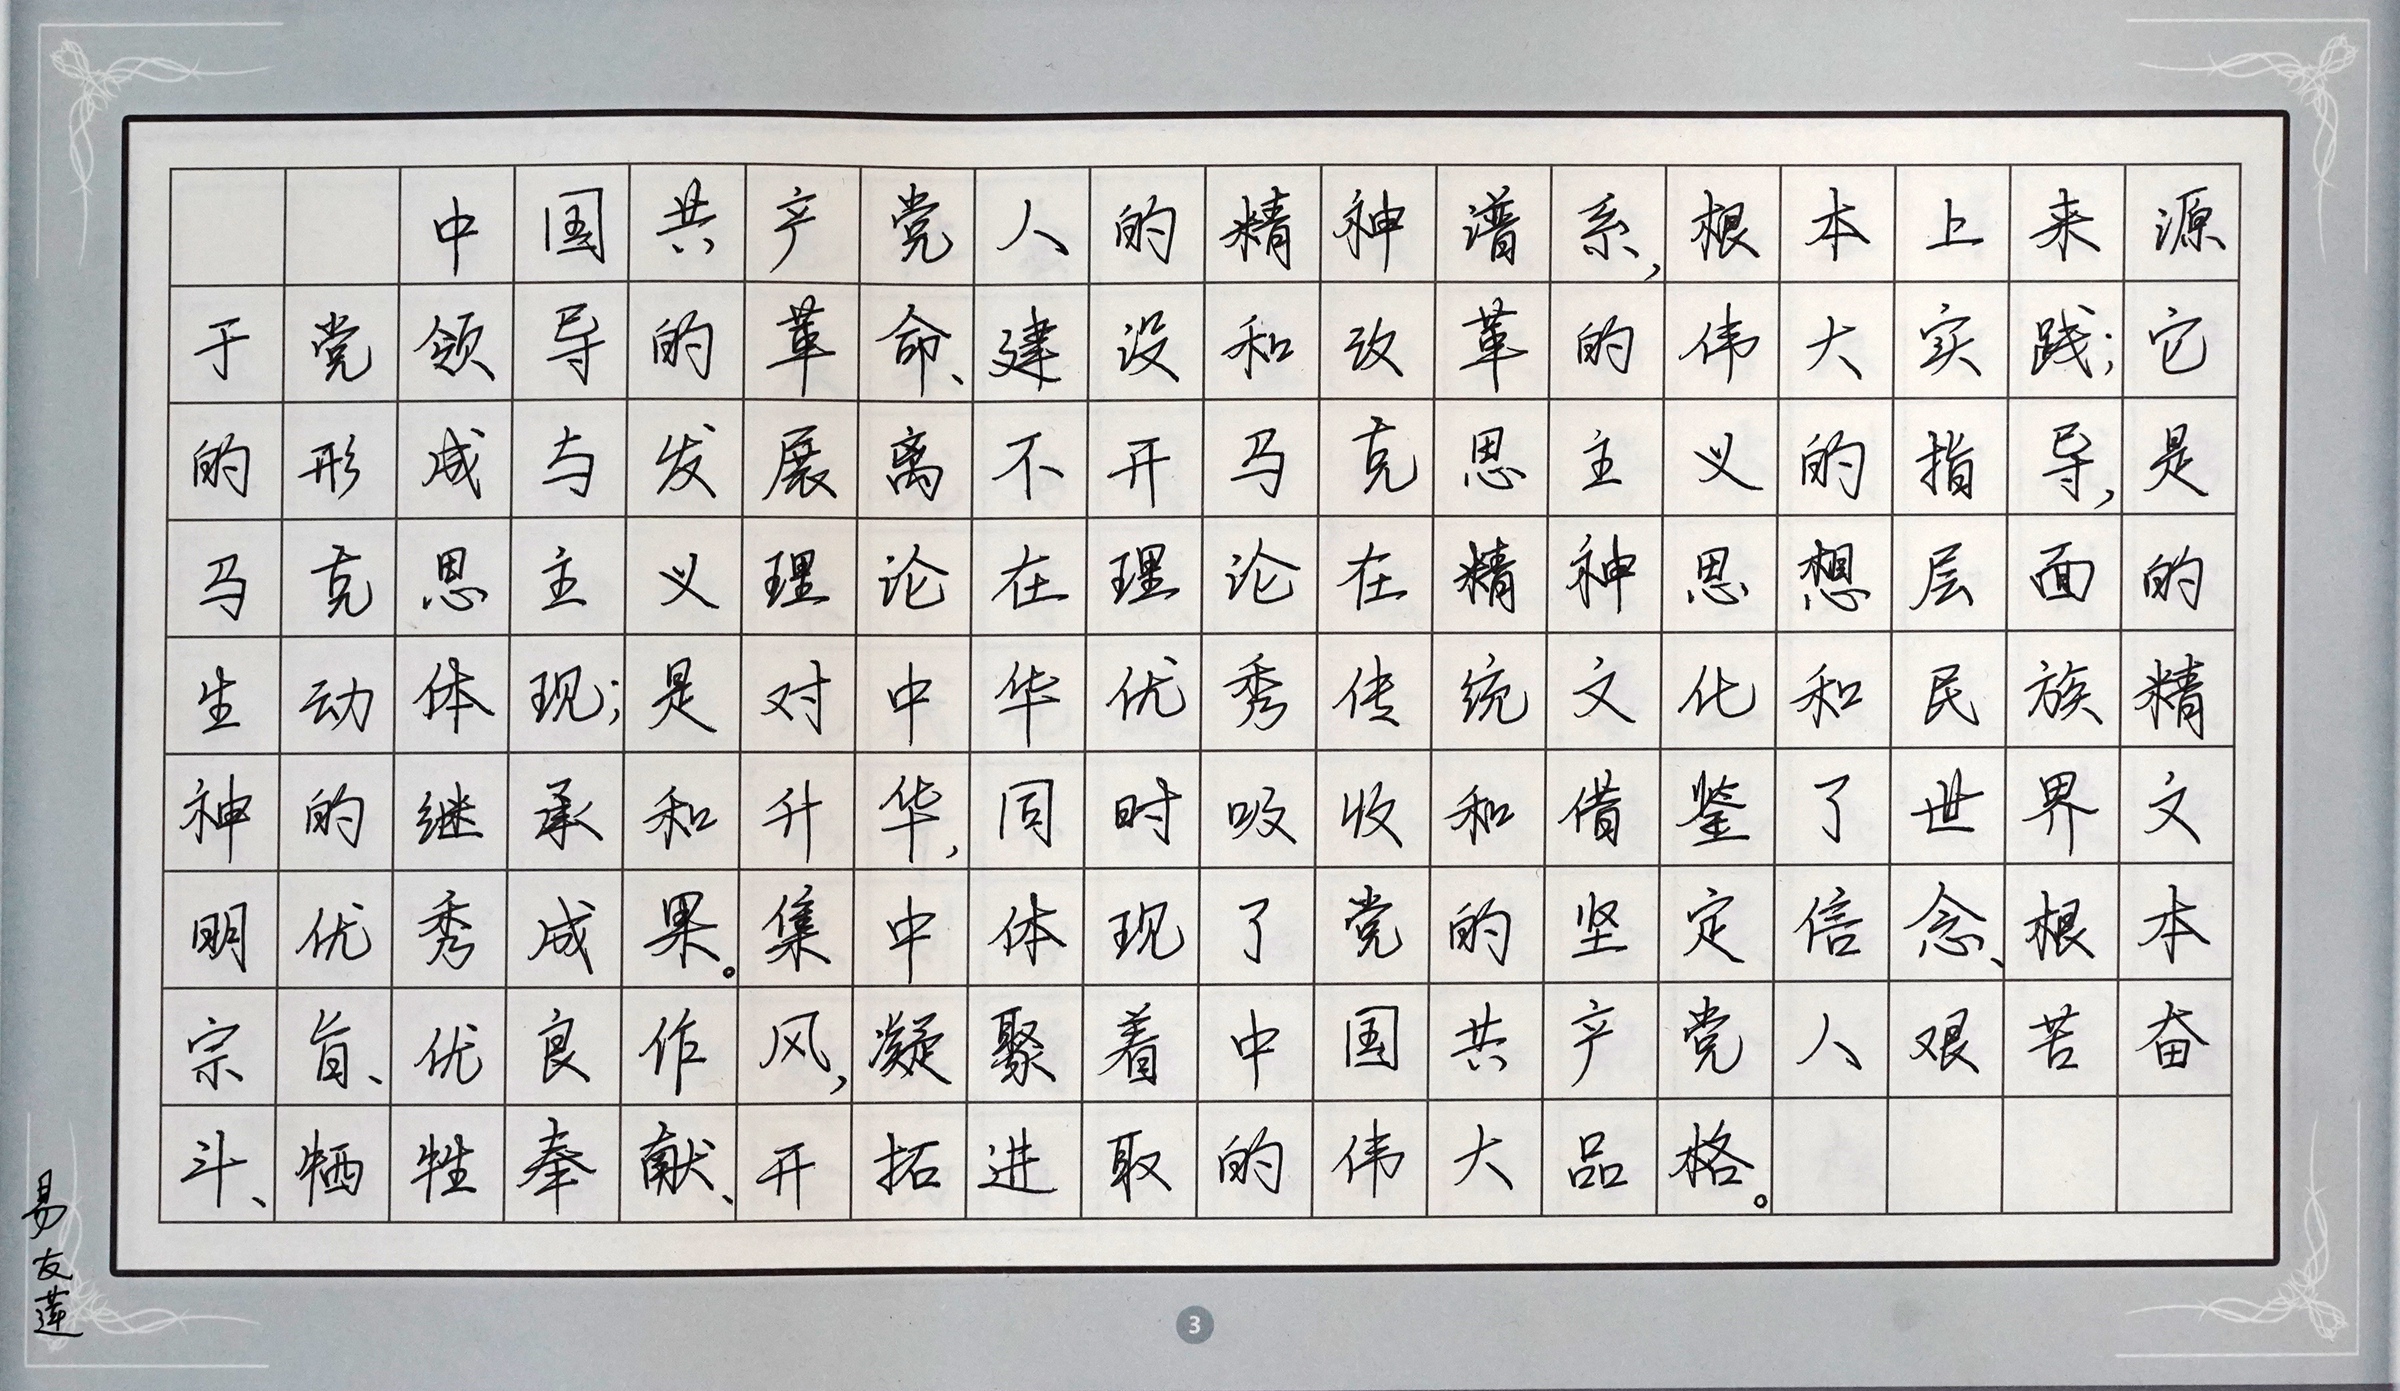 中国共产党人的精神谱系，根本上来源
于党领导的革命、建设和改革的伟大实践；它
的形成与发展离不开马克思主义的指导，是
马克思主义理论在理论在精神思想层面的
生动体现；是对中华优秀传统文化和民族精
神的继承和升华，同时吸收和借鉴了世界文
明优秀成果。集中体现了党的坚定信念、根本
宗旨、优良作风，凝聚着中国共产党人艰苦奋
斗、牺牲奉献、开拓进取的伟大品格。
易友莲
3